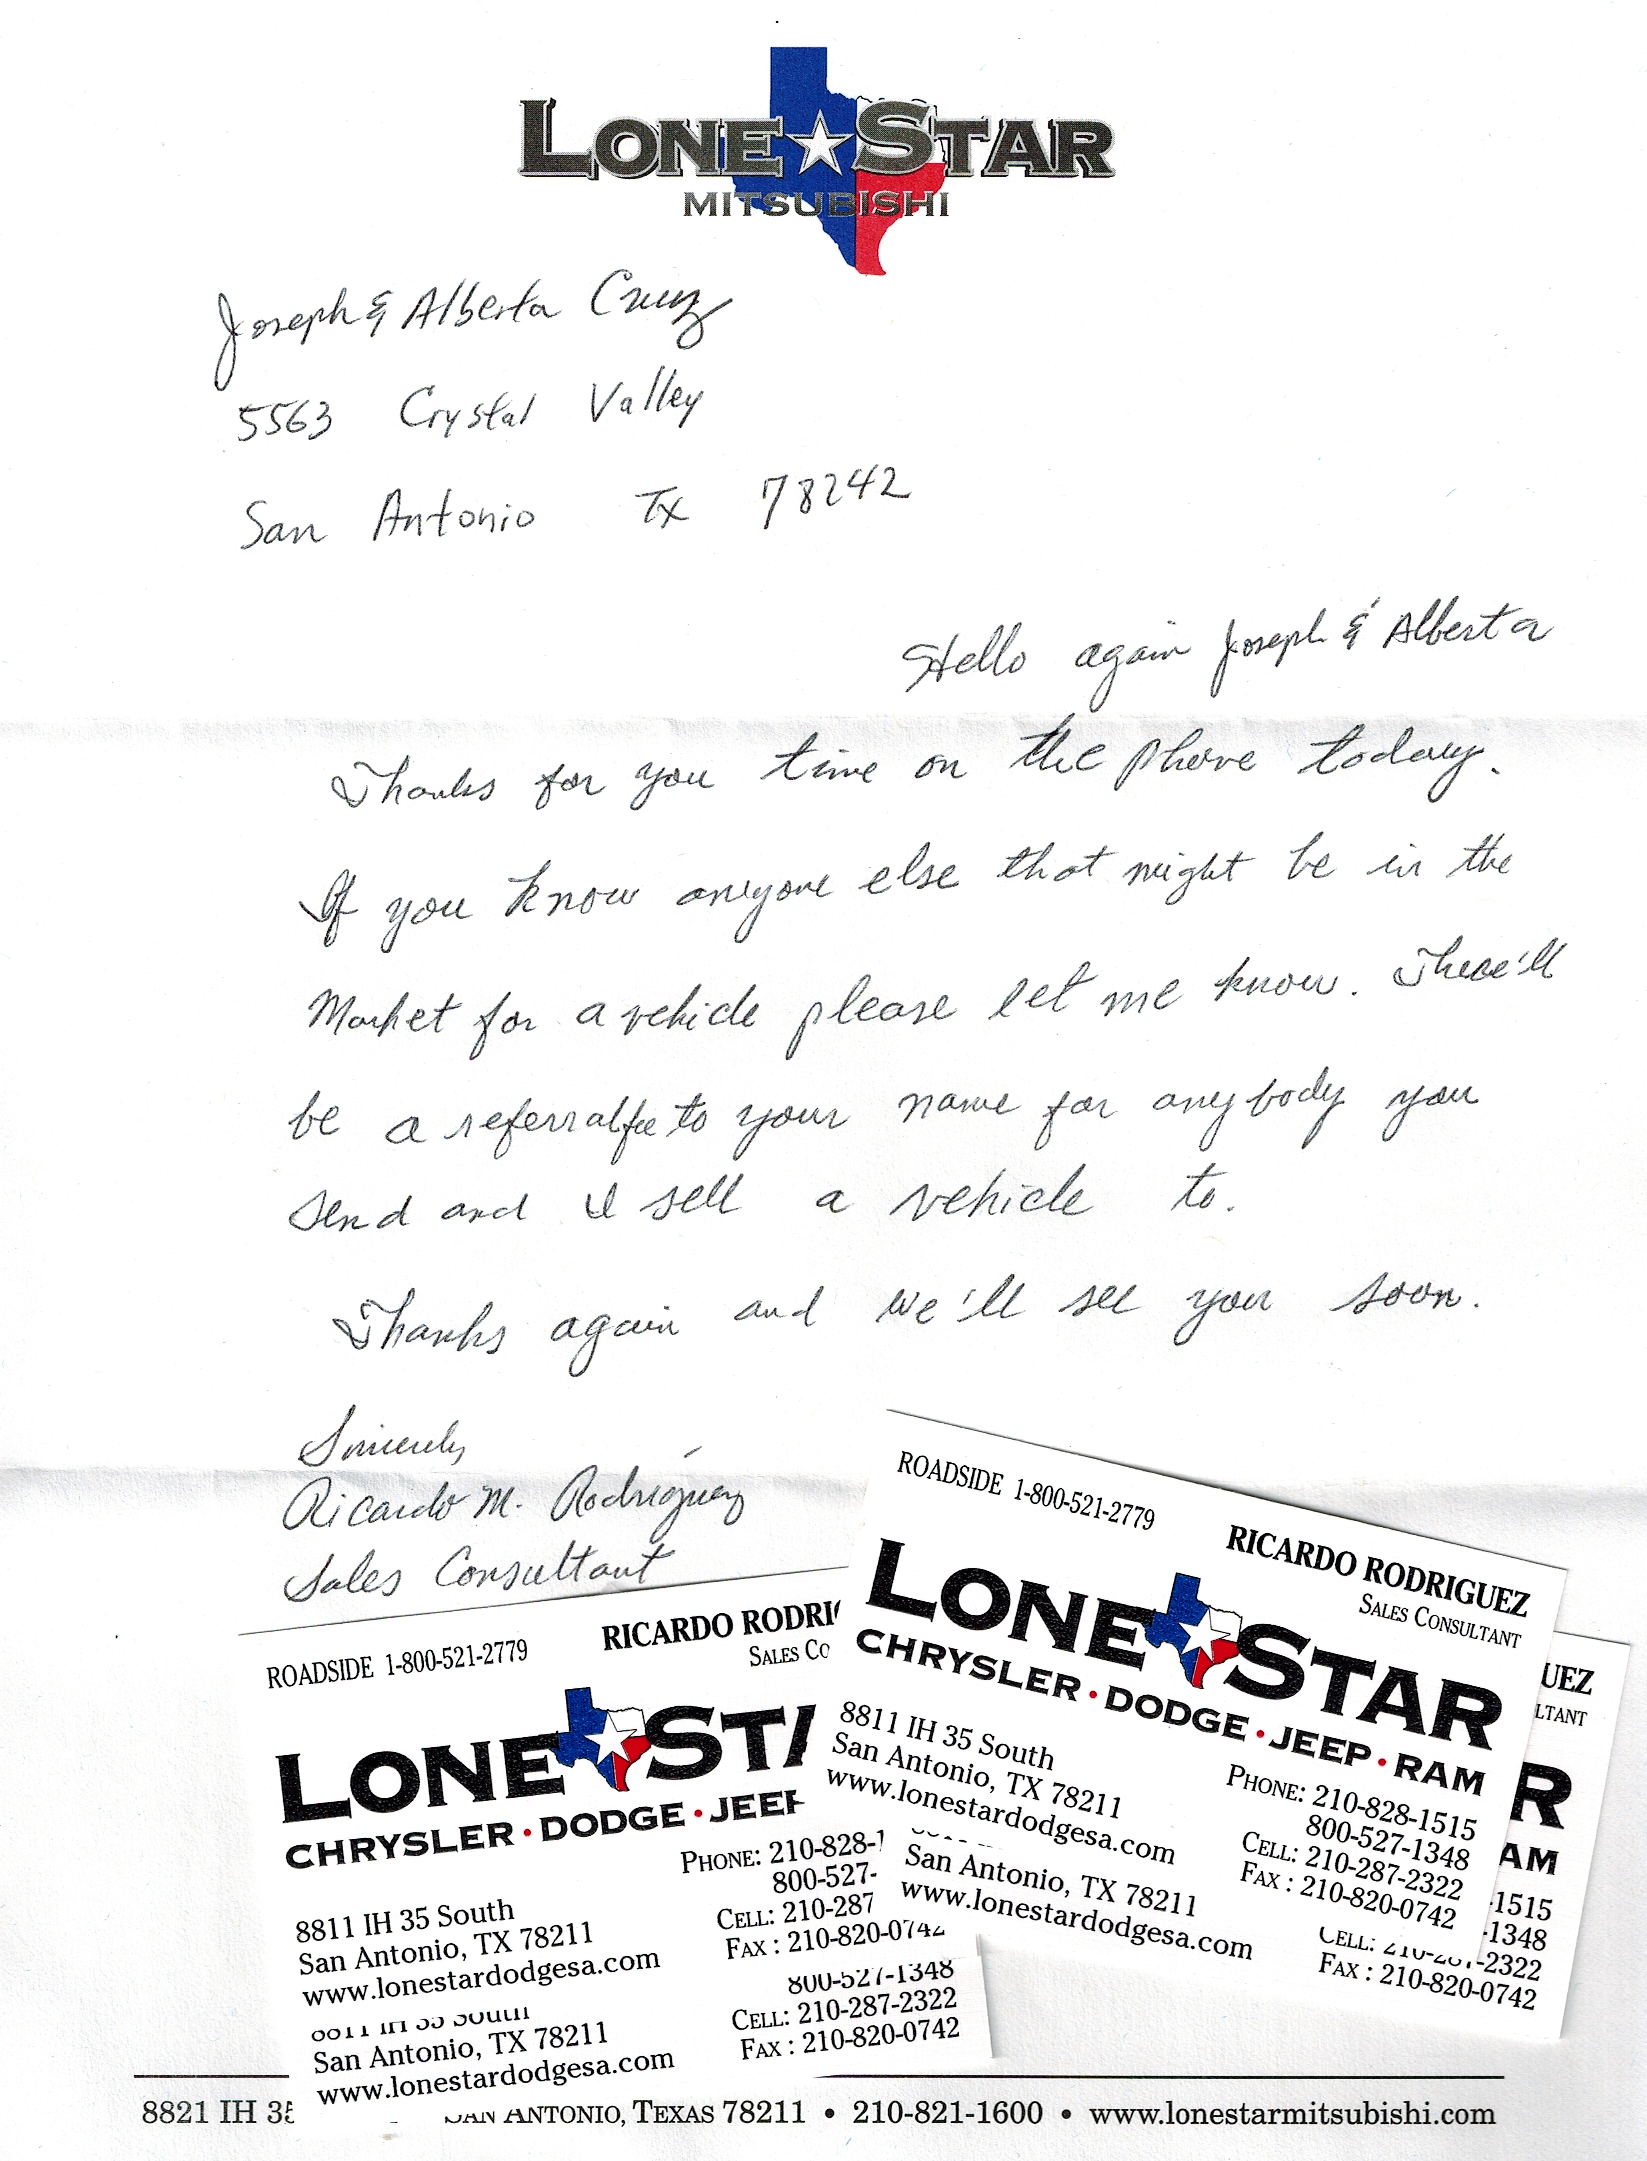 LONE STAR
MITSUBISHI
Joseph & Alberta Cruz
5563 Crystal Valley
San Antonio Tx 78242
Hello again Joseph & Alberta
Thanks for you time on the phone today.
If you know anyone else that might be in the
Market for a vehicle please let me know. There'll
be a referral fee to your name for anybody you
send and I sell a vehicle to.
Thanks again and we'll see you soon.
Sincerely
Ricardo M. Rodriguez
Sales Consultant
ROADSIDE 1-800-521-2779
RICARDO RODRIGUEZ
SALES CONSULTANT
LONE STAR
CHRYSLER • DODGE • JEEP • RAM
8811 IH 35 South
San Antonio, TX 78211
www.lonestardodgesa.com
PHONE: 210-828-1515
800-527-1348
CELL: 210-287-2322
FAX : 210-820-0742
San Antonio, TX 78211
www.lonestardodgesa.com
CELL: 210-287-2322
FAX : 210-820-0742
UEZ
LTANT
R
AM
-1515
-1348
ROADSIDE 1-800-521-2779
RICARDO RODRI
SALES CO
LONE STA
CHRYSLER • DODGE • JEEP
8811 IH 35 South
San Antonio, TX 78211
www.lonestardodgesa.com
PHONE: 210-828-1
800-527-
CELL: 210-287
FAX : 210-820-0742
8811 IH 35 South
San Antonio, TX 78211
www.lonestardodgesa.com
800-527-1348
CELL: 210-287-2322
FAX : 210-820-0742
8821 IH 35 SAN ANTONIO, TEXAS 78211 • 210-821-1600 • www.lonestarmitsubishi.com